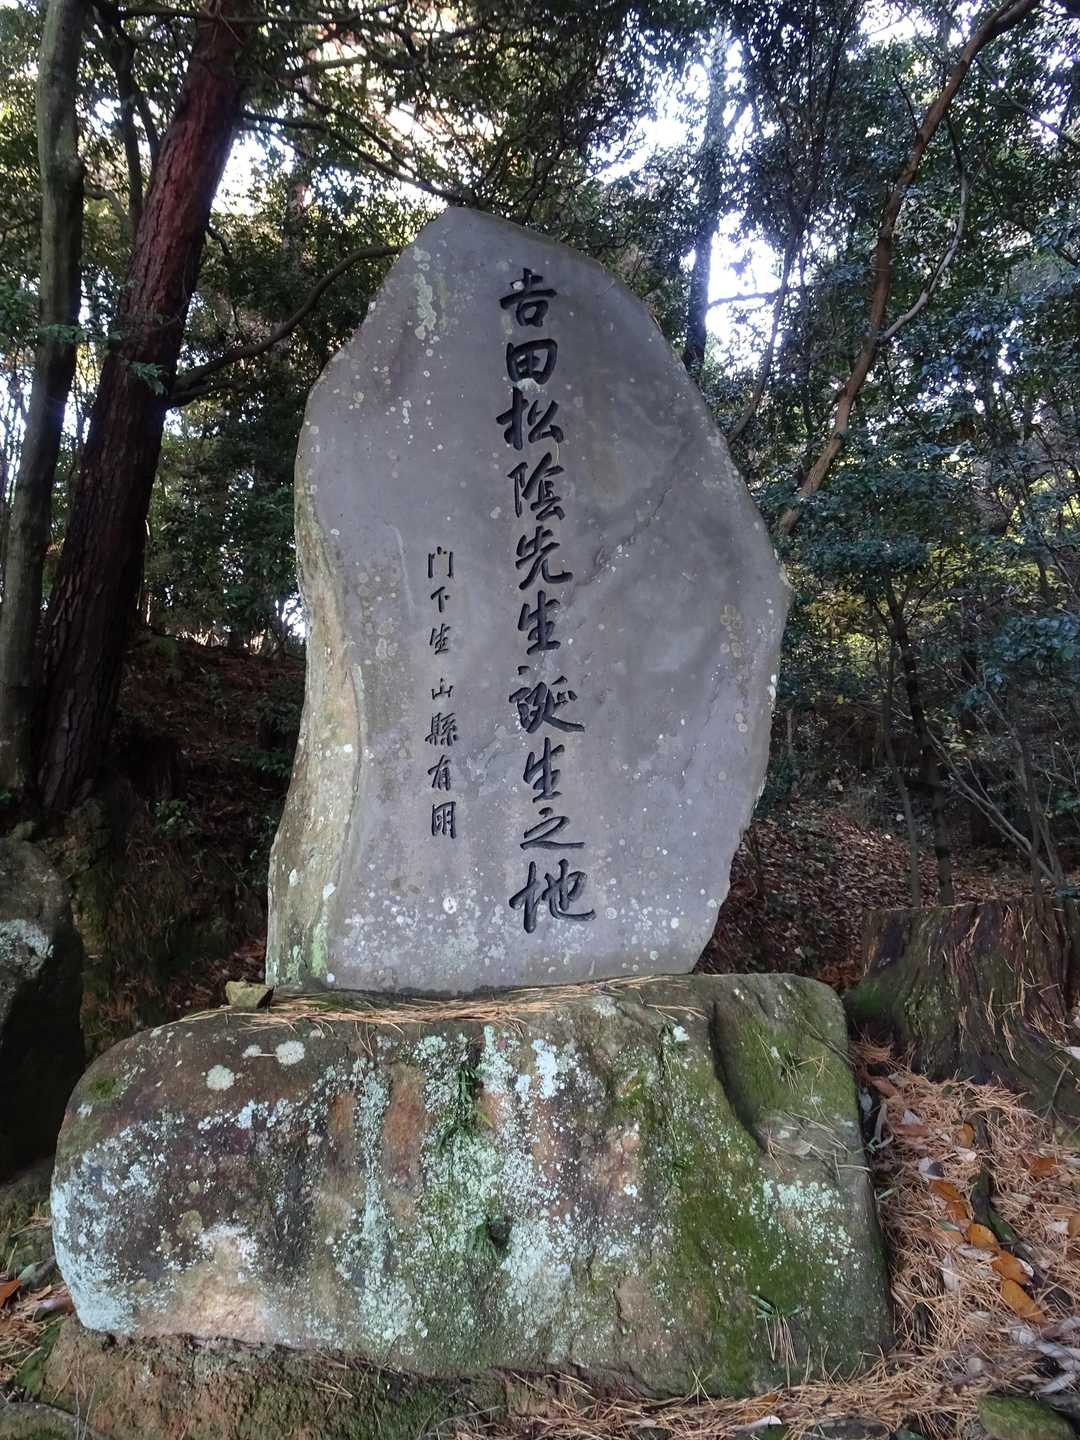 吉田松陰先生誕生之地
門下生 山縣有朋